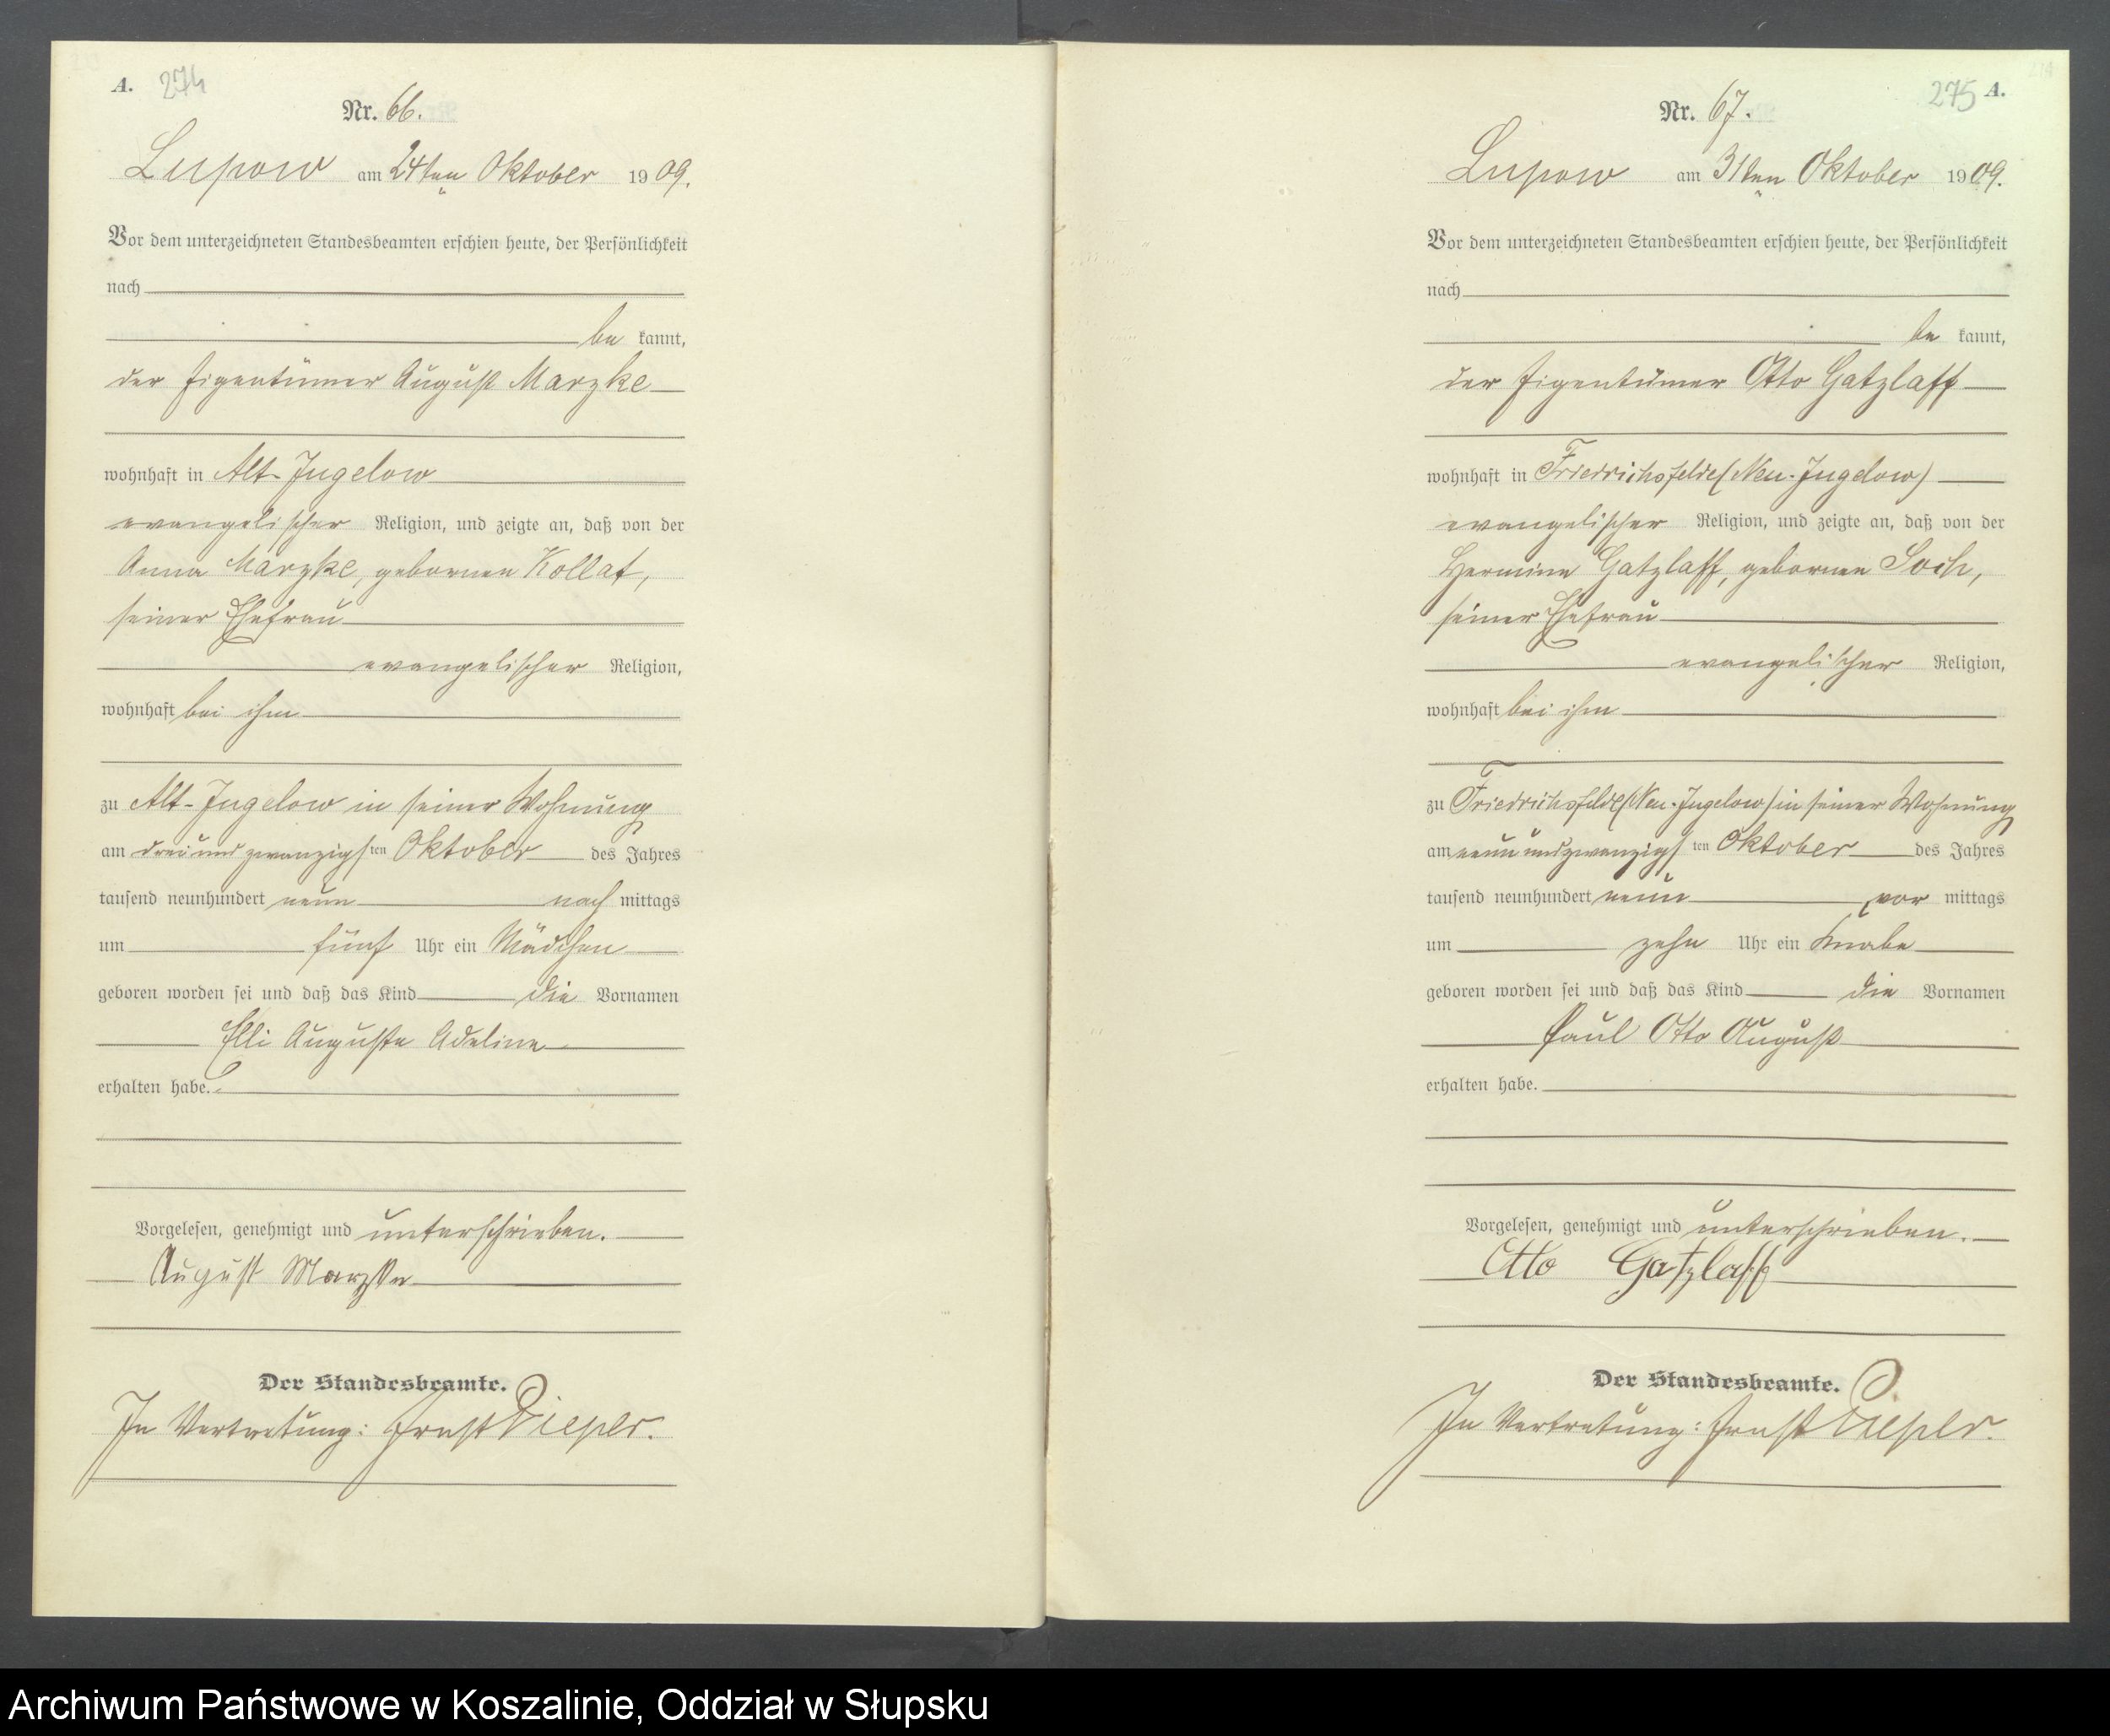 A. 274
Nr. 66.
Lupow am 24ten Oktober 1909.
Vor dem unterzeichneten Standesbeamten erschien heute, der Persönlichkeit
nach
be kannt,
der Eigentümer August Marzke
wohnhaft in Alt-Jugelow
evangelischer Religion, und zeigte an, daß von der
Anna Marzke, gebornen Kollat,
seiner Ehefrau
evangelischer Religion,
wohnhaft bei ihm
zu Alt-Jugelow in seiner Wohnung
am dreiundzwanzigsten Oktober des Jahres
tausend neunhundert neun nach mittags
um fünf Uhr ein Mädchen
geboren worden sei und daß das Kind die Vornamen
Elli Auguste Adeline
erhalten habe.
Vorgelesen, genehmigt und unterschrieben.
August Marzke
Der Standesbeamte.
In Vertretung: Ernst Pieper.
275 A.
Nr. 67.
Lupow am 31ten Oktober 1909.
Vor dem unterzeichneten Standesbeamten erschien heute, der Persönlichkeit
nach
be kannt,
der Eigentümer Otto Gatzlaff
wohnhaft in Friedrichsfelde (Neu-Jugelow)
evangelischer Religion, und zeigte an, daß von der
Hermine Gatzlaff, gebornen Soch,
seiner Ehefrau
evangelischer Religion,
wohnhaft bei ihm
zu Friedrichsfelde (Neu-Jugelow) in seiner Wohnung
am neunundzwanzigsten Oktober des Jahres
tausend neunhundert neun vor mittags
um zehn Uhr ein Knabe
geboren worden sei und daß das Kind die Vornamen
Paul Otto August
erhalten habe.
Vorgelesen, genehmigt und unterschrieben.
Otto Gatzlaff
Der Standesbeamte.
In Vertretung: Ernst Pieper.
Archiwum Państwowe w Koszalinie, Oddział w Słupsku